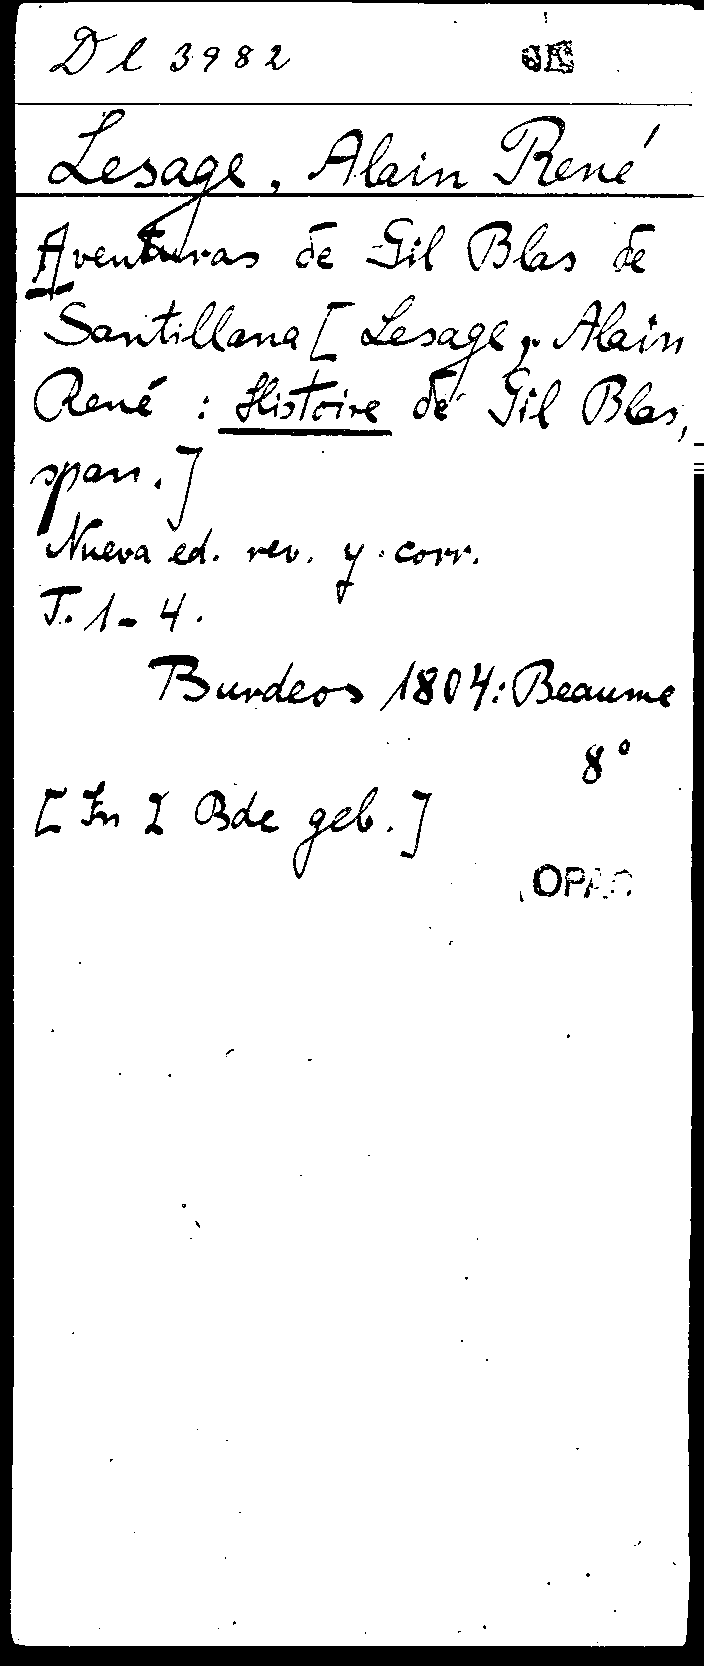 Dl 3982
Lesage, Alain René
Aventuras de Gil Blas de
Santillana [Lesage, Alain
René : Histoire de Gil Blas,
span.]
Nueva ed. rev. y corr.
T. 1-4.
Burdeos 1804: Beaume
8°
[In 2 Bde geb.]
OPAC